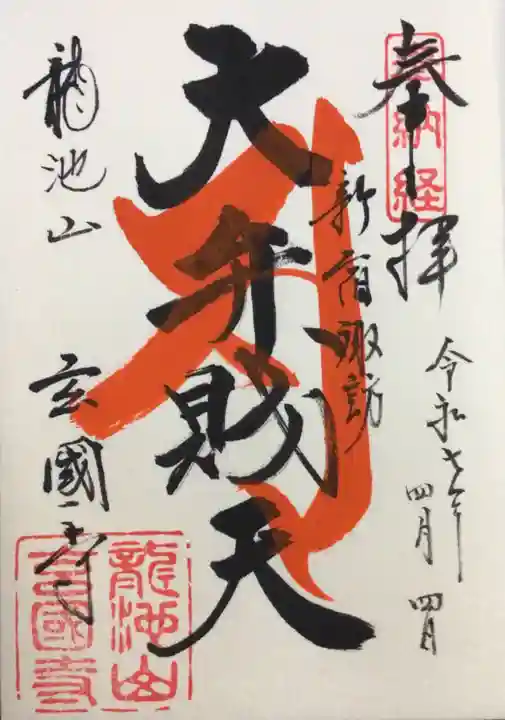 奉拝
納経
令和七年
四月 四日
新宿諏訪
大弁財天
龍池山
玄國寺
龍池山
玄國寺